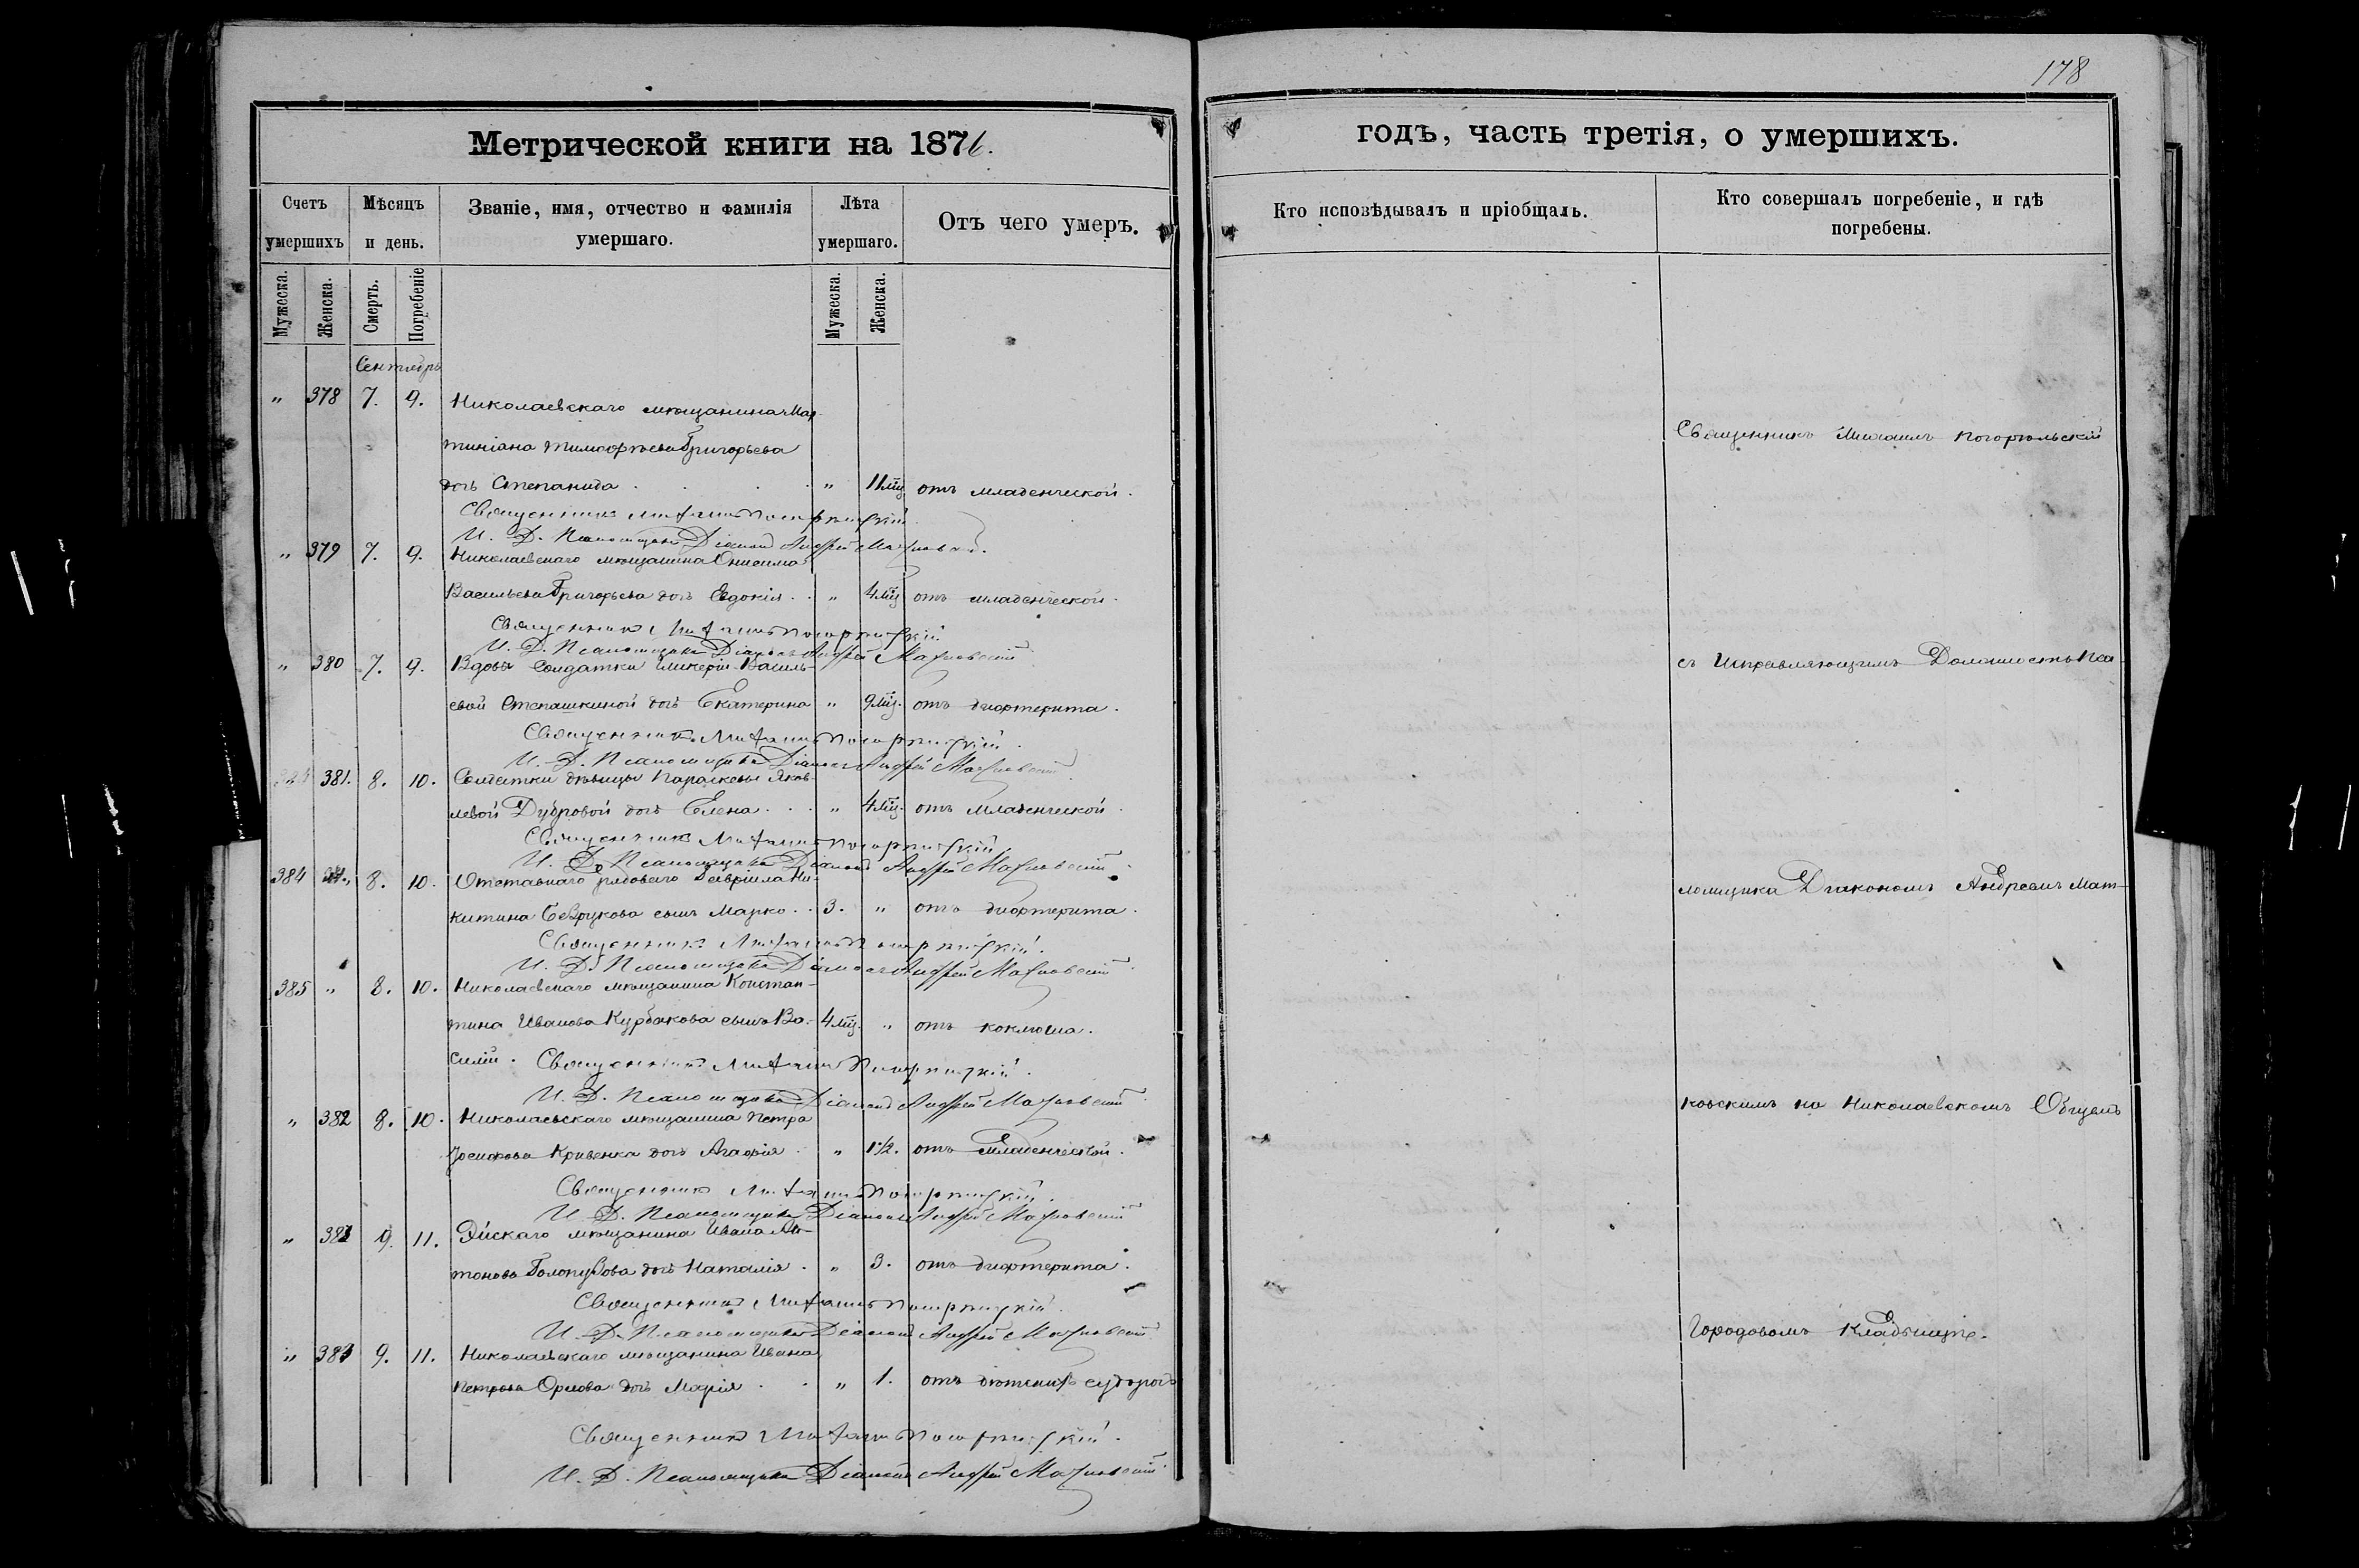 178
Метрической книги на 1876.
годъ, часть третія, о умершихъ.
Счетъ умершихъ
Мѣсяцъ и день.
Званіе, имя, отчество и фамилія умершаго.
Лѣта умершаго.
Отъ чего умеръ.
Кто исповѣдывалъ и пріобщалъ.
Кто совершалъ погребеніе, и гдѣ погребены.
Мужеска. Женска. Смерть. Погребеніе Мужеска. Женска.
Сентябрь
" 378 7. 9. Николаевскаго мѣщанина Мар-
тиніана Тимофѣева Григорьева
дочь Степанида . . . " 11 мѣц отъ младенческой.
Священникъ Михаилъ Погорѣльскій
И. Д. Псаломщика Діаконъ Андрей
" 379 7. 9. Николаевскаго мѣщанина Онисима
Васильева Григорьева дочь Евдокія . . " 4 мѣц отъ младенческой.
Священникъ Михаилъ Погорѣльскій
И. Д. Псаломщика Діаконъ Андрей
" 380 7. 9. Вдовы солдатки Гликеріи Василь-
евой Степашкиной дочь Екатерина " 9 мѣц. отъ дифтерита.
Священникъ Михаилъ Погорѣльскій.
И. Д. Псаломщика Діаконъ Андрей
381. 8. 10. Солдатки дѣвицы Параскевы Яков-
левой Дубровой дочь Елена . . . " 4 мѣц. отъ младенческой.
Священникъ Михаилъ Погорѣльскій
И. Д. Псаломщика Діаконъ Андрей
384 " 8. 10. Отставнаго рядоваго Гавріила Ни-
китина сынъ Марко . . 3. " отъ дифтерита.
Священникъ Михаилъ Погорѣльскій.
И. Д. Псаломщика Діаконъ Андрей
385 " 8. 10. Николаевскаго мѣщанина Констан-
тина Иванова Курбакова сынъ Ва- 4 мѣц. " отъ коклюша.
силій. Священникъ Михаилъ Погорѣльскій.
И. Д. Псаломщика Діаконъ Андрей
" 382 8. 10. Николаевскаго мѣщанина Петра
Іосифова Кривенка дочь Агафія . " 1 1/2. отъ младенческой.
Священникъ Михаилъ Погорѣльскій.
И. Д. Псаломщика Діаконъ Андрей
" 383 9. 11. мѣщанина Ивана Ан-
тонова дочь Наталія . " 3. отъ дифтерита.
Священникъ Михаилъ Погорѣльскій.
И. Д. Псаломщика Діаконъ Андрей
" 9. 11. Николаевскаго мѣщанина Ивана
Петрова Орлова дочь Марія . . " 1. отъ судорогъ
Священникъ Михаилъ Погорѣльскій.
И. Д. Псаломщика Діаконъ Андрей
Священникъ Михаилъ Погорѣльскій
съ Исправляющимъ Должность Пса-
ломщика Діакономъ Андреемъ Мат-
ковскимъ на Николаевскомъ Общемъ
Городовомъ Кладбищѣ.